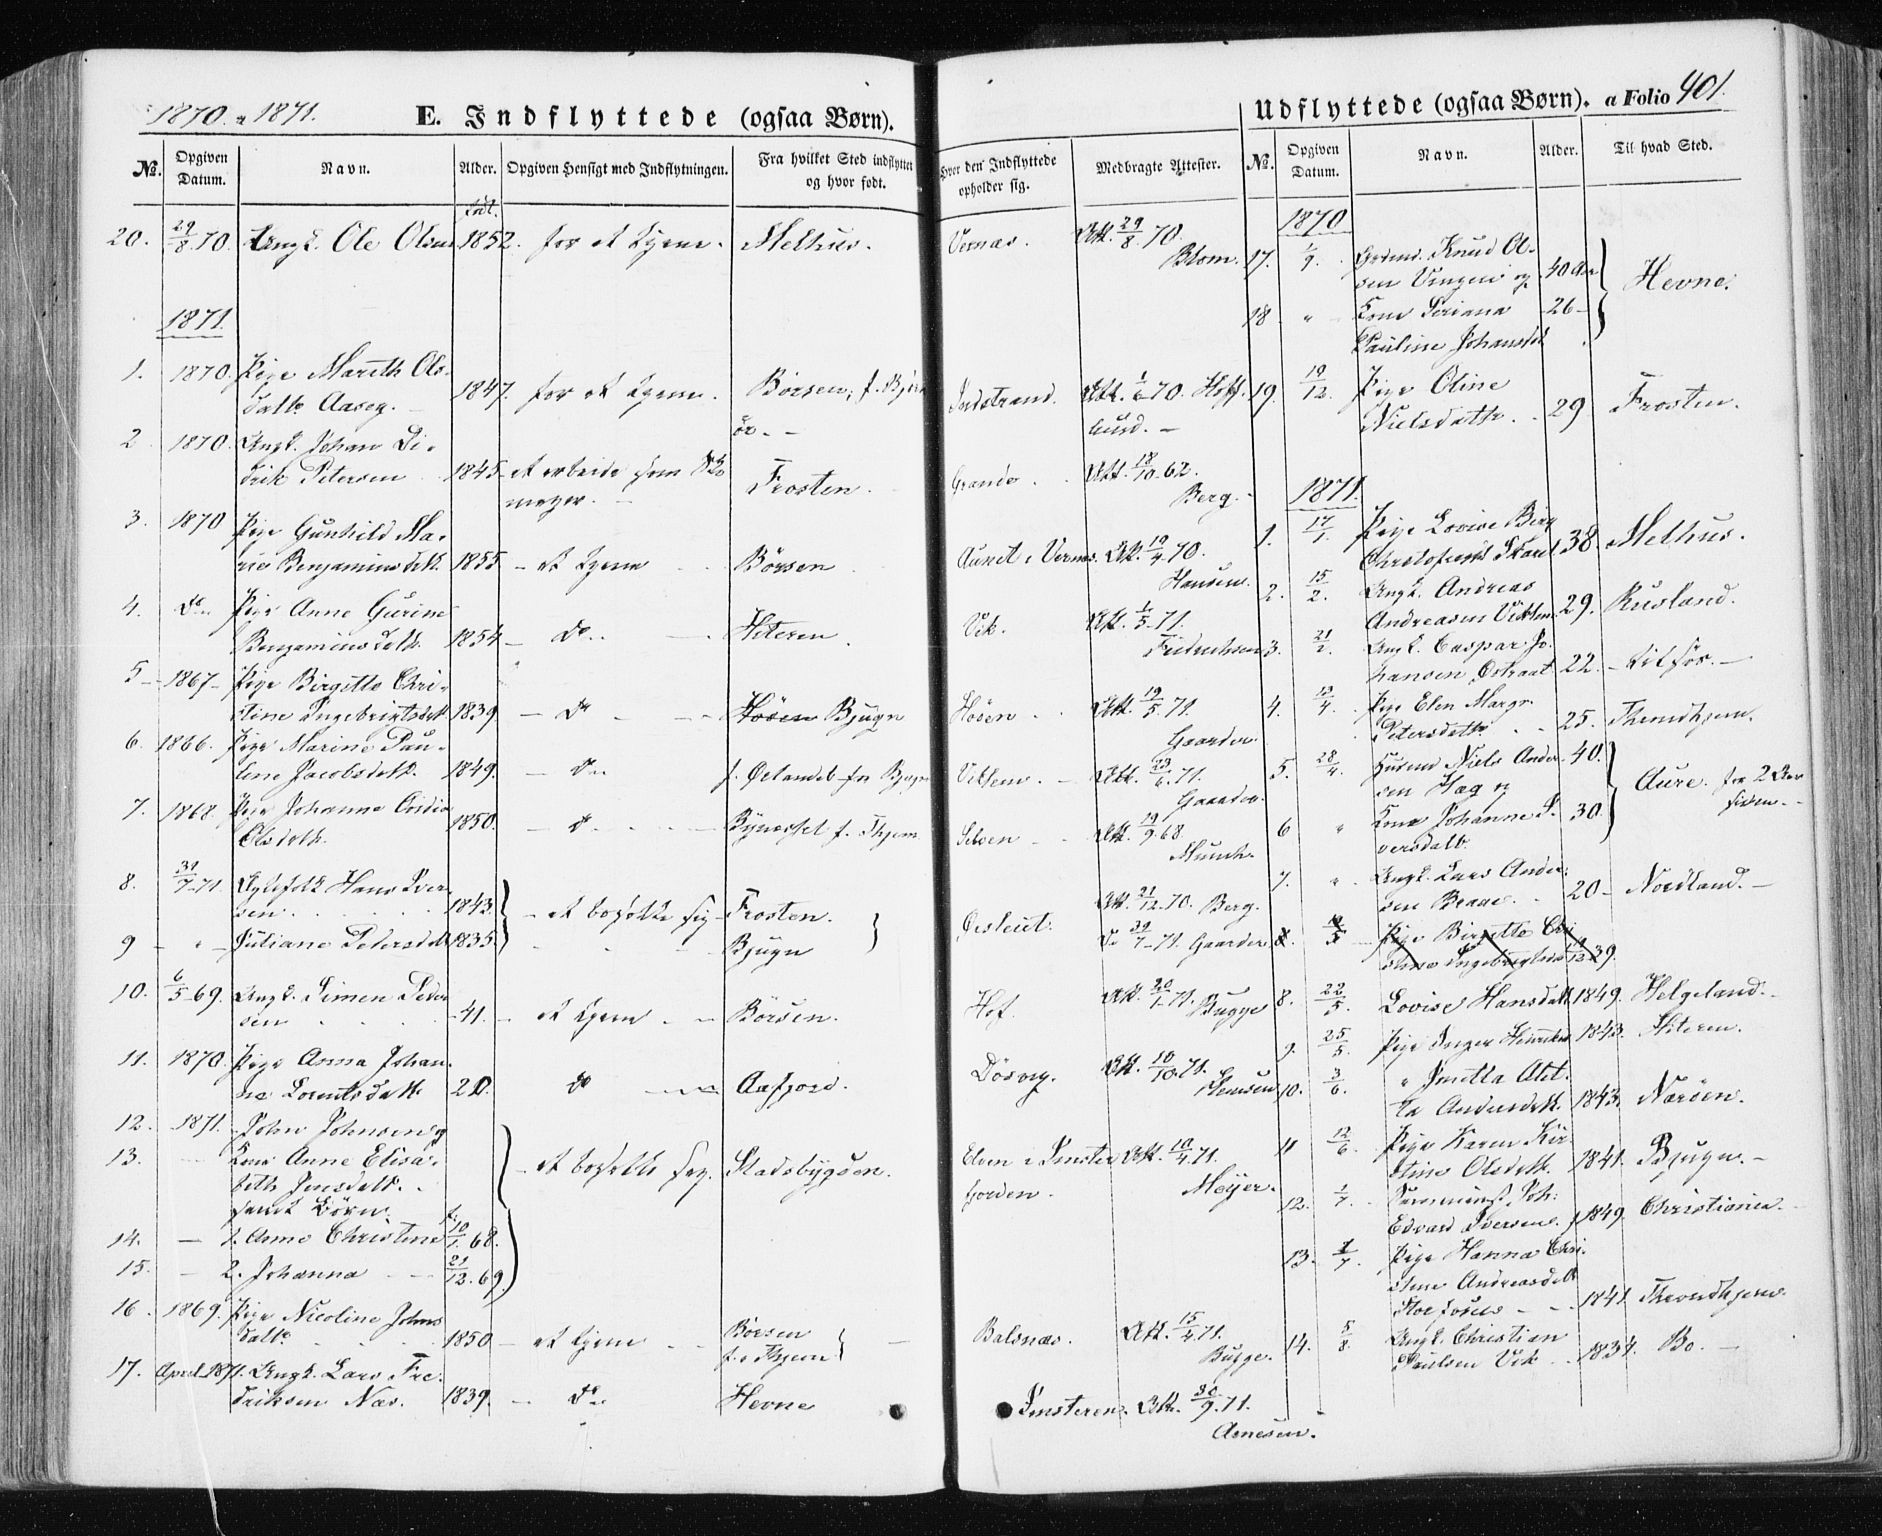 1870 a 1871.
E. Indflyttede (ogsaa Børn).
No. Opgiven Datum. Navn. Alder. Opgiven Hensigt med Indflytningen. Fra hvilket Sted indflyttet og hvor født.
20. 29/8 70. Ungk. Ole Olsen 1852. for at tjene. Melhus.
1871.
1. 1870. Pige Mareth Ols-
datter Aaseg. 1847. for at tjene. Børsen, f. Bjør
ör.
2 1870. Ungk. Johan Di-
drik Petersen 1845 at arbeide som Sko
mager. Frosten.
3. 1870 Pige Gunhild Ma-
rie Benjaminsdatt. 1855 - at tjene Børsen
4. Do Pige Anne Gurine
Benjaminsdatt. 1854 - do Hiteren
5 1867 Pige Birgitte Chri-
stine Ingebrigtsdatt 1839 - do Høsen Bjugn
6. 1866. Pige Marine Pau-
line Jacobsdatt. 1849. - do f. Ørlandet fra Bjugn
7. 1868. Pige Johanna
Olsdatt. 1850. - do Bynesset f. Thjem
8. 31/7 71. Hans Iver-
sen 1843. - at bosætte sig Frosten.
9 - " - Juliane Petersdatt 1835. Bjugn
10. 6/5 69. Ungk. Simen Peder
sen 41. - at tjene Børsen.
11. 1870. Pige Anna Johan-
ne Lorentsdatt. 20 do Aafjord.
12. 1871. John Johnsen og
13. Kone Anne Elisa-
beth Jensdatt.
samt Børn - at bosætte sig. Stadsbygden.
14. - 1. Anne Christine f. 10/1 68.
15. - 2. Johanna 21/12. 69.
16. 1869. Pige Nicoline Johns
datt. 1850 - at tjene Børsen
f. i Thjem
17. April 1871. Ungk. Lars Fre-
driksen Næs. 1839. - do Hevne
Udflyttede (ogsaa Børn). a Folio 401.
Hvor den Indflyttede opholder sig. Medbragte Attester. No. Opgiven Datum. Navn. Alder. Til hvad Sted.
Vernæs. Att. 29/8 70.
Blom.
Indstrand. Att. 1/6 70. Hoff.
Grande. Att. 18/10 62.
Berg.
Aunet i Vernæs. Att. 19/4 70.
Hansen.
Vik. Att. 1/5 71.
Fredrichsen
Høsen Att. 19/5 71.
Gaarder.
Viklem. Att. 23/6 71.
Gaarder.
Selven Att. 19/9 68.
Munch.
Att. 21/12 70. Berg.
Do 31/7 71. Gaarder
Hof. Att. 20/1 71.
Bugge
Døsvig. Att. 10/10 71.
Elven i Imster Att. 10/4 71.
fjorden. Meyer.
Balsnæs. Att. 15/4 71.
Bugge.
Imsteren. Att. 30/9 71.
Arnesen.
1870
17. 1/9. Grdmd. Knud Ol-
sen Vingen og 40 Aar
18 " Kone Seriana 26
Pauline Johansdt. Hevne.
19. 19/12. Pige Oline
Nielsdatter 29 Frosten.
1871.
1. 17/1. Pige Lovise Berg
Christofersdt Skaret 38. Melhus.
2. 15/2. Ungk. Andreas
Andreasen Viklem 29. Rusland.
3. 21/2. Ungk. Caspar Jo-
hansen Østraat 22.
4. 13/4. Pige Elen Margr.
Petersdatter 25. Throndhjem.
5. 28/4. Husmd Niels Ander 40.
sen Hag og
6 " Kone Johanne S. 30.
versdatt. Aure. for 2 Aar
siden.
7. " Ungk. Lars Ander-
sen 20 Nordland.
8. 12/5 Pige Birgitte Chri
stine Ingebrigtsd 39.
8. 22/5. Lovise Hansdatt. 1849. Helgeland.
9. 25/5. Pige Inger 1843. Hiteren.
10. 3/6. " Jmitta Alet-
ta Andersdatt. 1843. Nærøen.
11 12/6 Pige Karen Kir-
stine Olsdatt. 1841. Bjugn.
12. 1/7 Joh:
Edvard Iversen. 1849. Christiania.
13. 7/7. Pige Hanna Chri-
stine Andreasdatt
Storfosen 1841. Throndhjem.
14. 5/8. Ungk. Christian
Paulsen Vik 1834. Do.